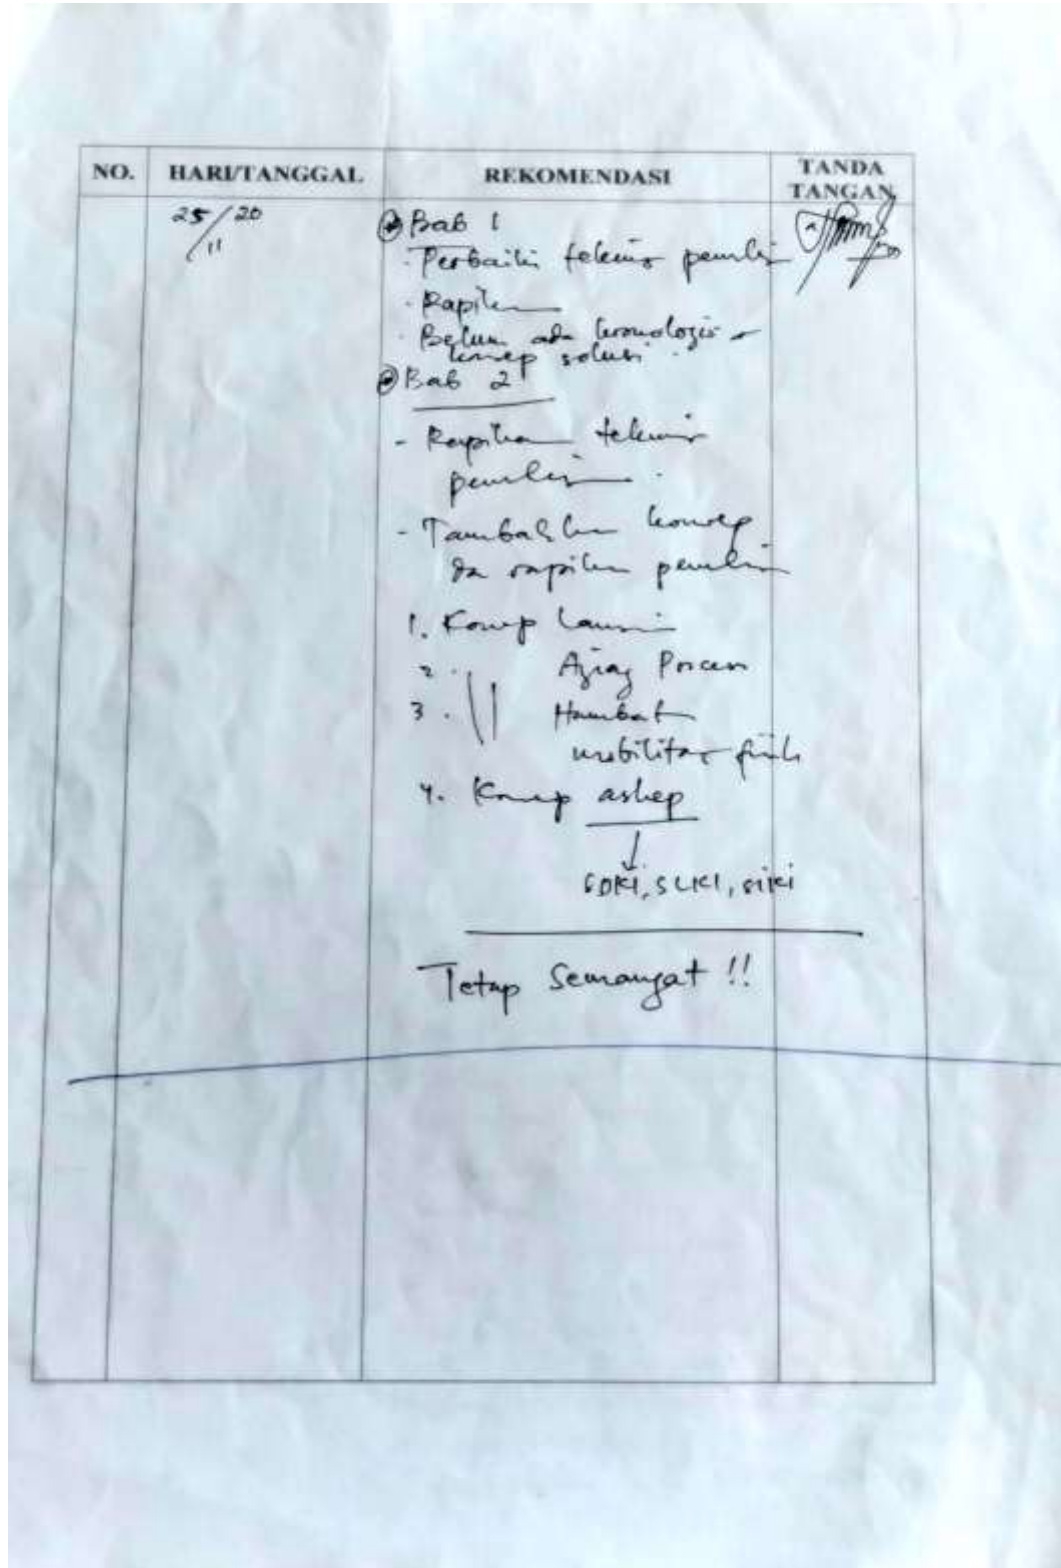 NO. HARI/TANGGAL REKOMENDASI TANDA TANGAN
25/20
11
Bab 1
- Perbaiki teknis penulisan
- Rapikan
- Belum ada kronologis -
konsep solusi.
Bab 2
- Rapikan teknis
penulisan.
- Tambahkan konsep
dan rapikan penulisan
1. Konsep Lansia
2. " Aging Proces
3. " Hambatan
mobilitas fisik
4. Konsep askep
↓
SDKI, SLKI, SIKI
Tetap Semangat !!